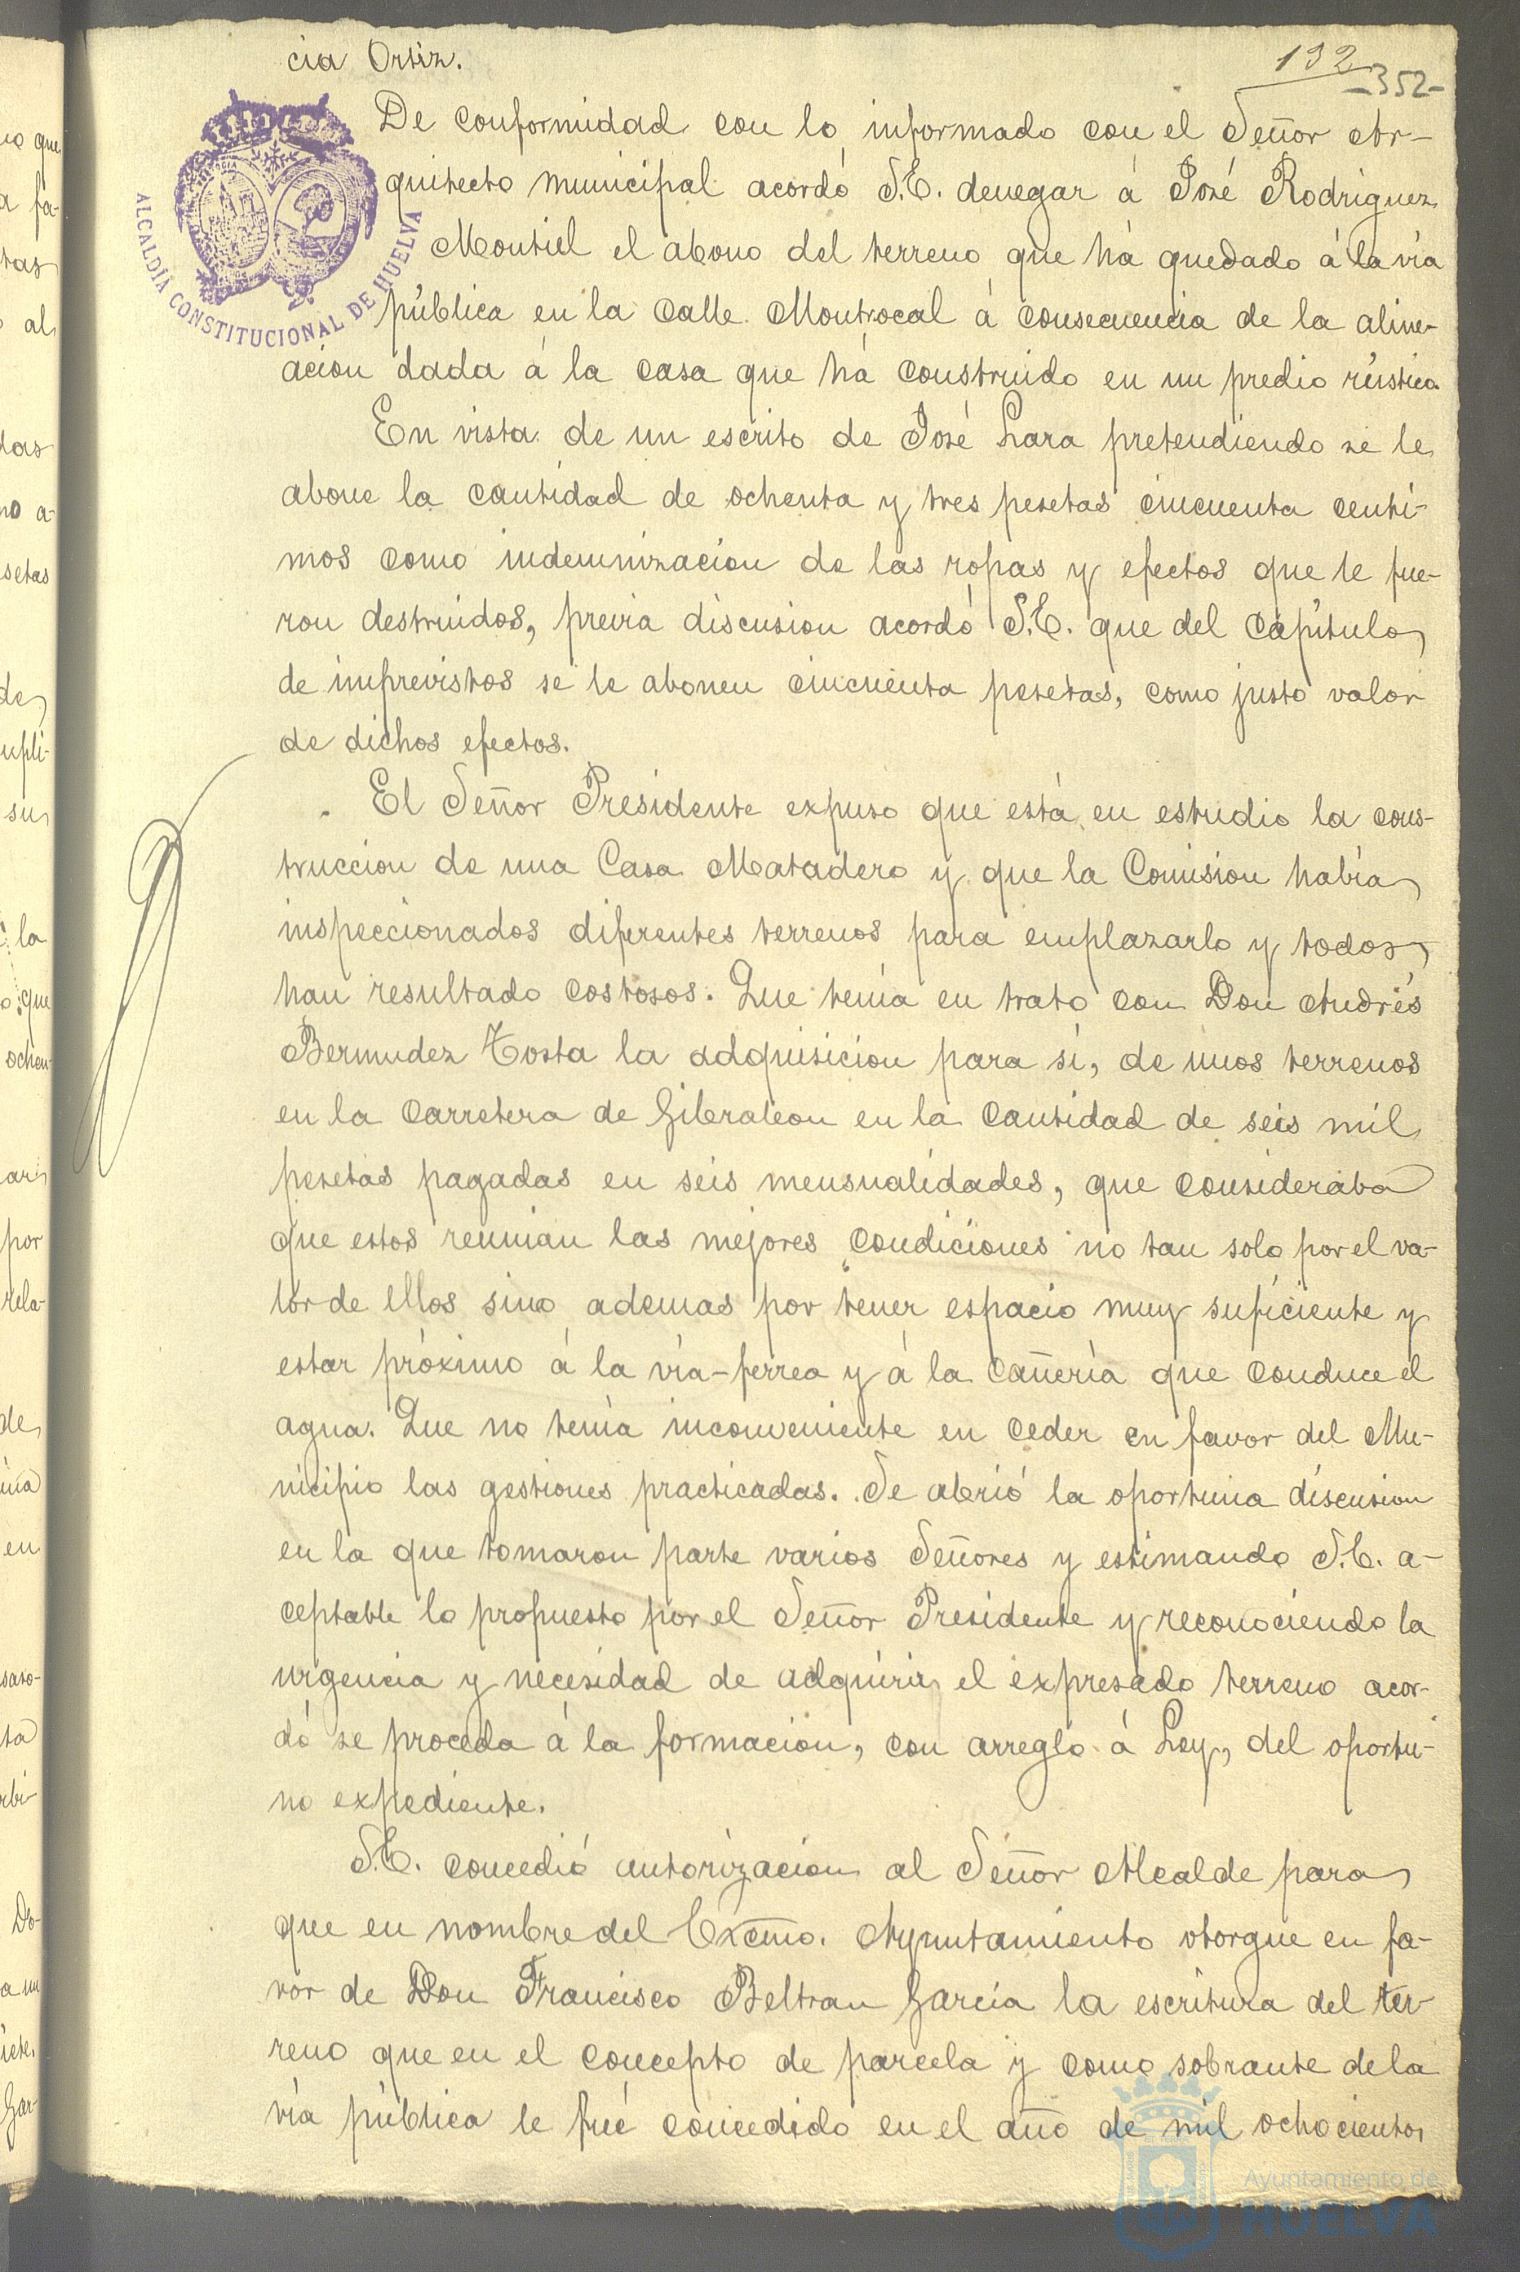 cia Ortiz.
132
-352-
ALCALDÍA CONSTITUCIONAL DE HUELVA
De conformidad con lo informado con el Señor Ar-
quitecto municipal acordó S.E. denegar á José Rodriguez
Montiel el abono del terreno que há quedado á la vía
pública en la calle Montrocal á consecuencia de la aline-
acion dada á la casa que há construido en un predio rústico.
En vista de un escrito de José Lara pretendiendo se le
abone la cantidad de ochenta y tres pesetas cincuenta centi-
mos como indemnizacion de las ropas y efectos que le fue-
ron destruidos, previa discusion acordó S.E. que del capítulo
de imprevistos se le abonen cincuenta pesetas, como justo valor
de dichos efectos.
El Señor Presidente expuso que está en estudio la cons-
truccion de una Casa Matadero y que la Comision había
inspeccionados diferentes terrenos para emplazarlo y todos
han resultado costosos. Que tenía en trato con Don Andrés
Bermudez Tosta la adquisicion para sí, de unos terrenos
en la carretera de Gibraleon en la cantidad de seis mil
pesetas pagadas en seis mensualidades, que consideraba
que estos reunian las mejores condiciones no tan solo por el va-
lor de ellos sino ademas por tener espacio muy suficiente y
estar próximo á la vía-ferrea y á la cañería que conduce el
agua. Que no tenía inconveniente en ceder en favor del Mu-
nicipio las gestiones practicadas. Se abrió la oportuna discusion
en la que tomaron parte varios Señores y estimando S.E. a-
ceptable lo propuesto por el Señor Presidente y reconociendo la
urgencia y necesidad de adquirir el expresado terreno acor-
dó se proceda á la formacion, con arreglo á Ley, del oportu-
no expediente.
S.E. concedió autorizacion al Señor Alcalde para
que en nombre del Excmo. Ayuntamiento otorgue en fa-
vor de Don Francisco Beltran García la escritura del ter-
reno que en el concepto de parcela y como sobrante de la
vía pública le fué concedido en el año de mil ochocientos
Ayuntamiento de
HUELVA